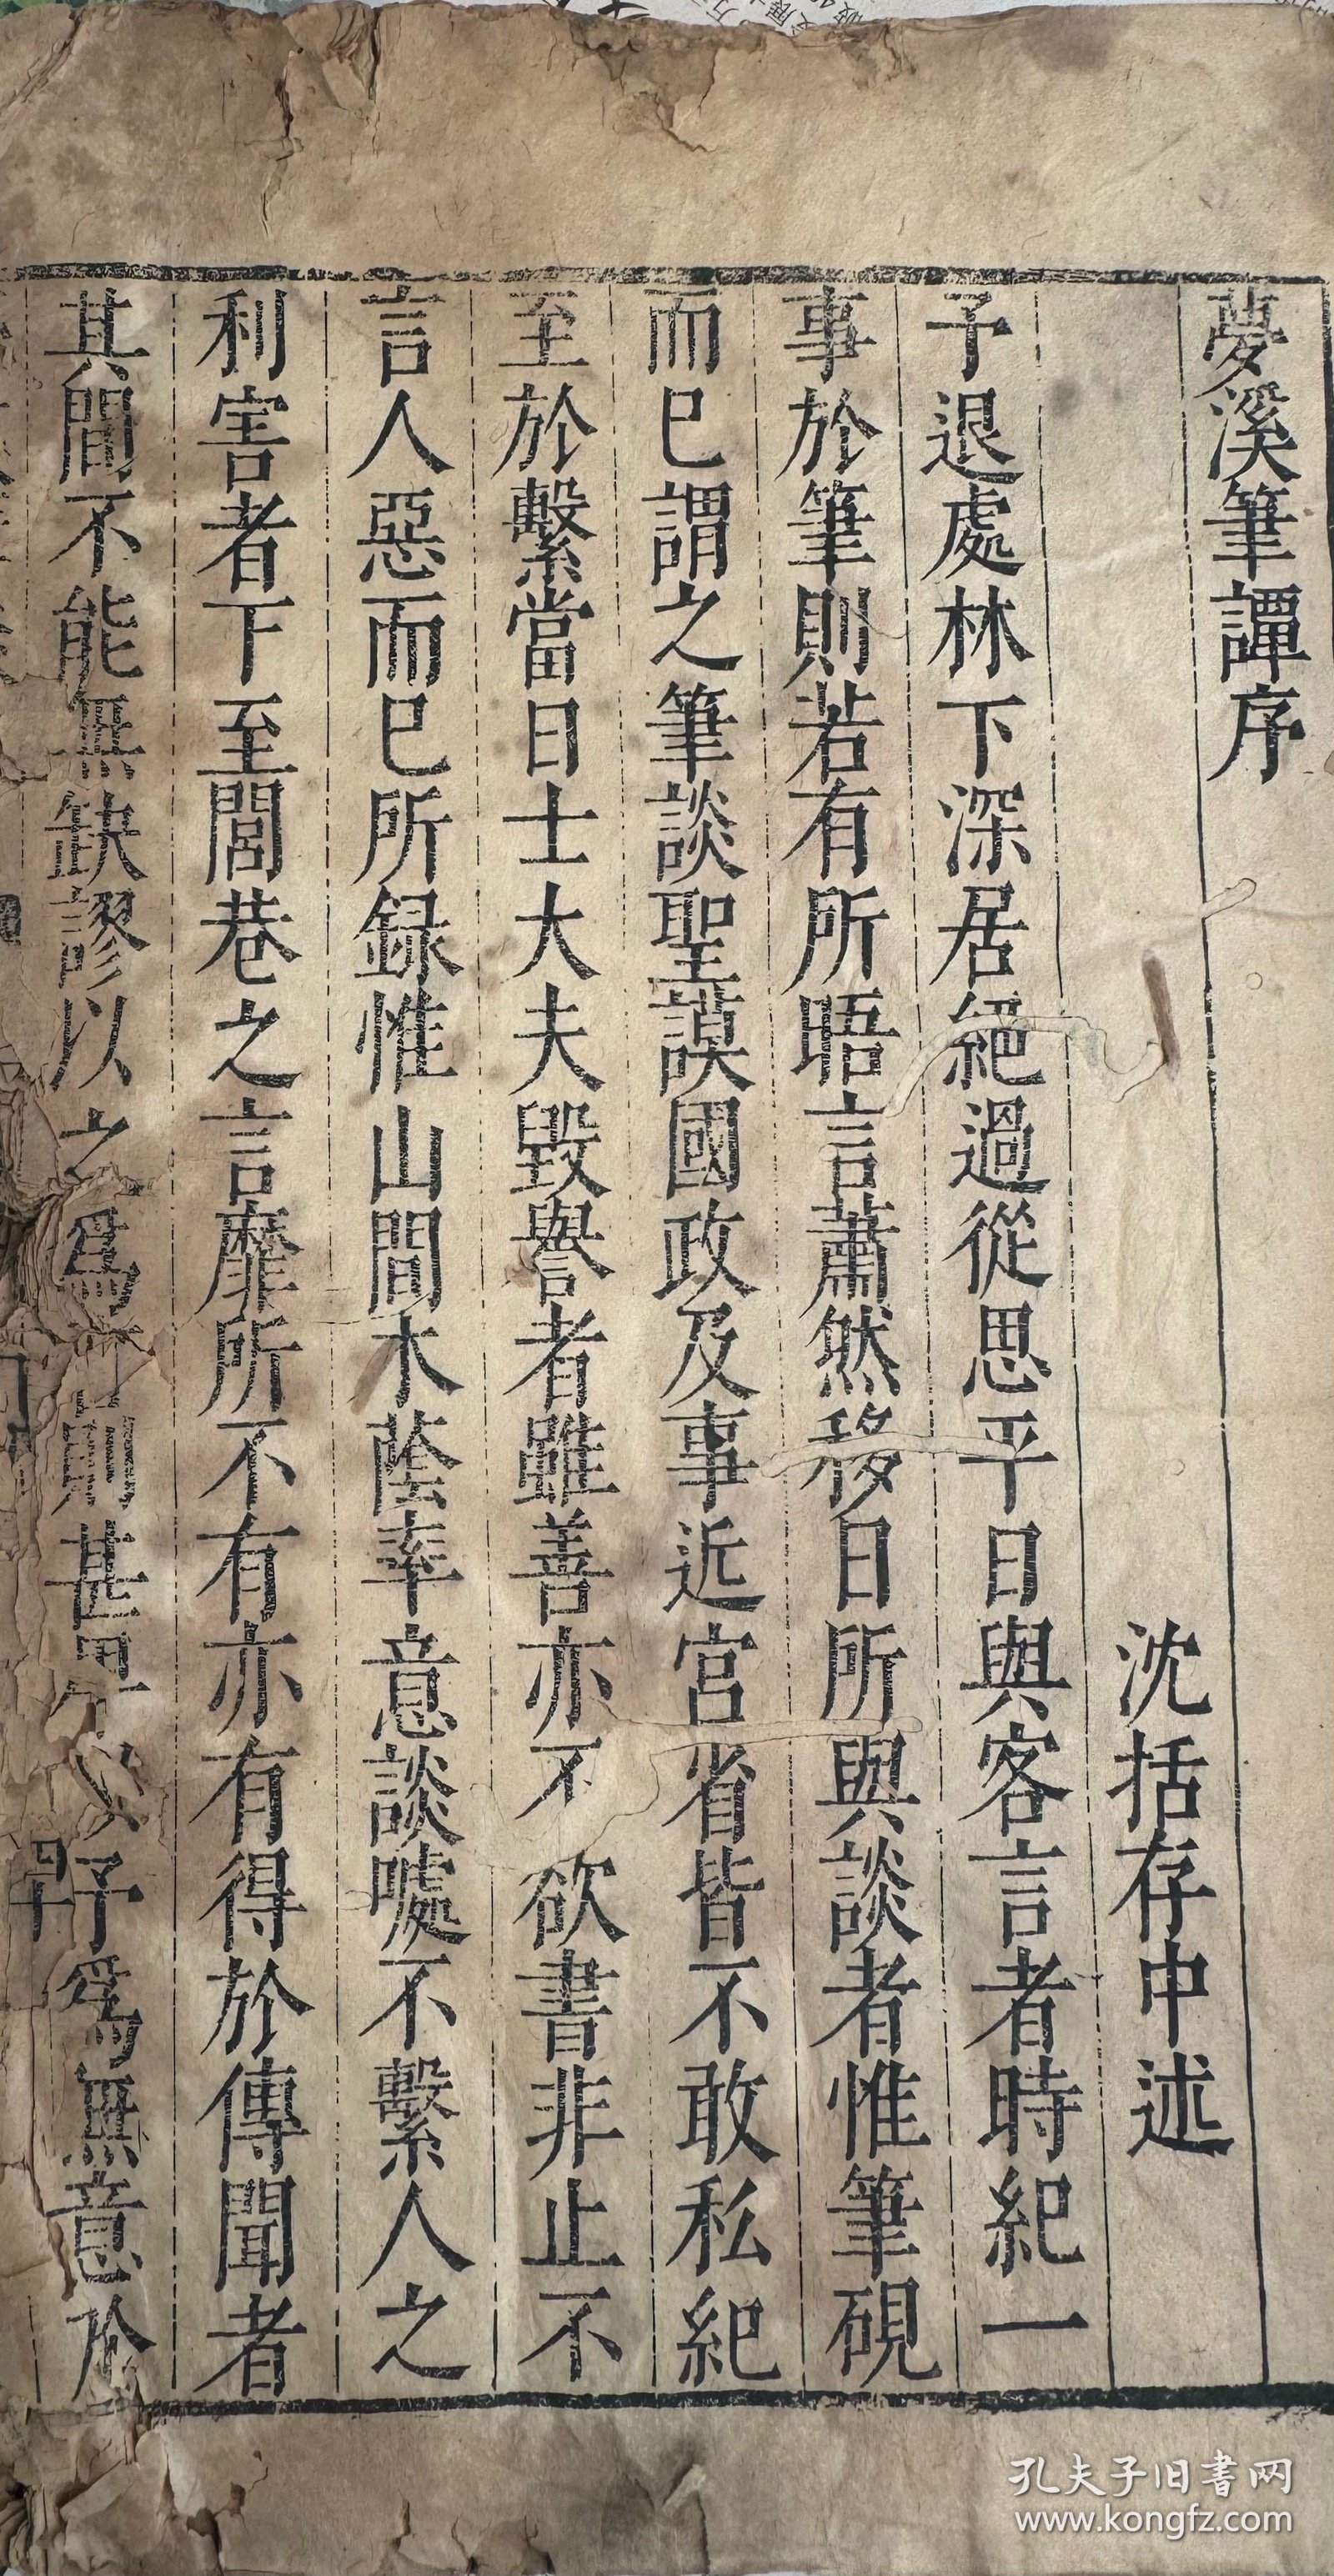 夢溪筆譚序
沈括存中述
予退處林下深居絕過從思平日與客言者時紀一
事於筆則若有所晤言蕭然移日所與談者惟筆硯
而已謂之筆談聖謨國政及事近宮省皆不敢私紀
至於繫當日士大夫毀譽者雖善亦不欲書非止不
言人惡而已所録惟山間木蔭率意談噱不繫人之
利害者下至閭巷之言靡所不有亦有得於傳聞者
其間不能無缺謬以之為言則甚卑以予為無意於
孔夫子旧書网
www.kongfz.com